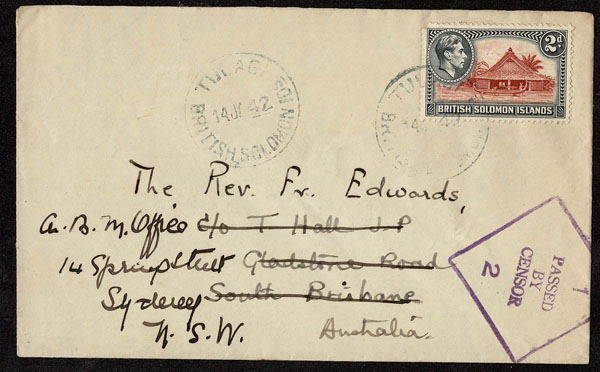 2d
BRITISH SOLOMON ISLANDS
TULAGI
14 JA 42
BRITISH SOLOMON IDS
TULAGI
14
The Rev. Fr. Edwards,
A.B.M. Office c/o T Hall J.P
14 Spring Street Gladstone Road
Sydney South Brisbane
N.S.W. Australia.
1
PASSED
BY
CENSOR
2